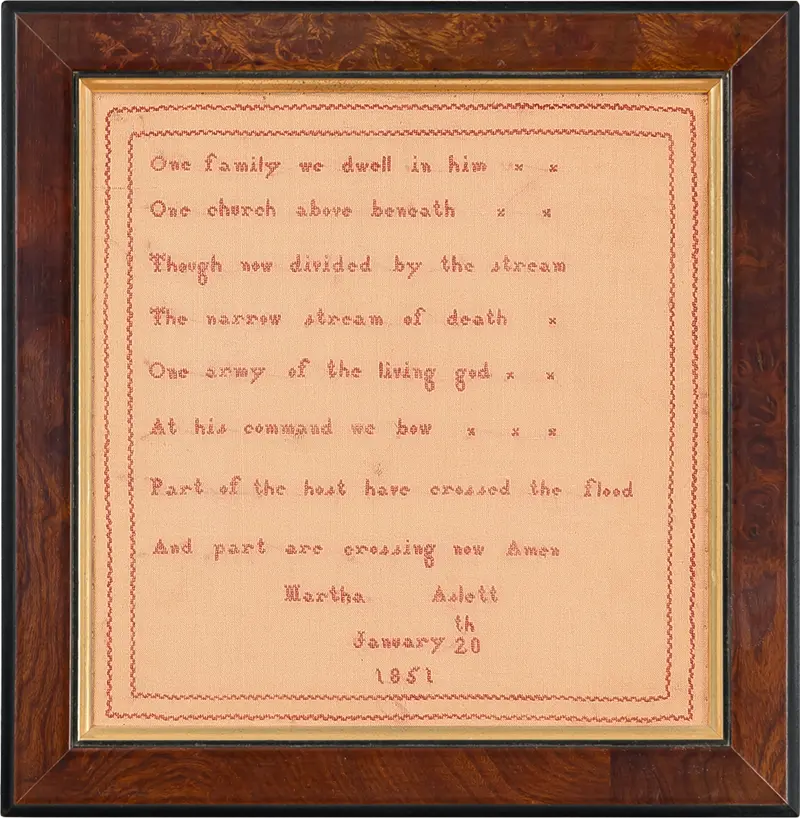 One family we dwell in him x x
One church above beneath x x
Though now divided by the stream
The narrow stream of death x
One army of the living god x x
At his command we bow x x x
Part of the host have crossed the flood
And part are crossing now Amen
Martha Aslett
January 20th
1851